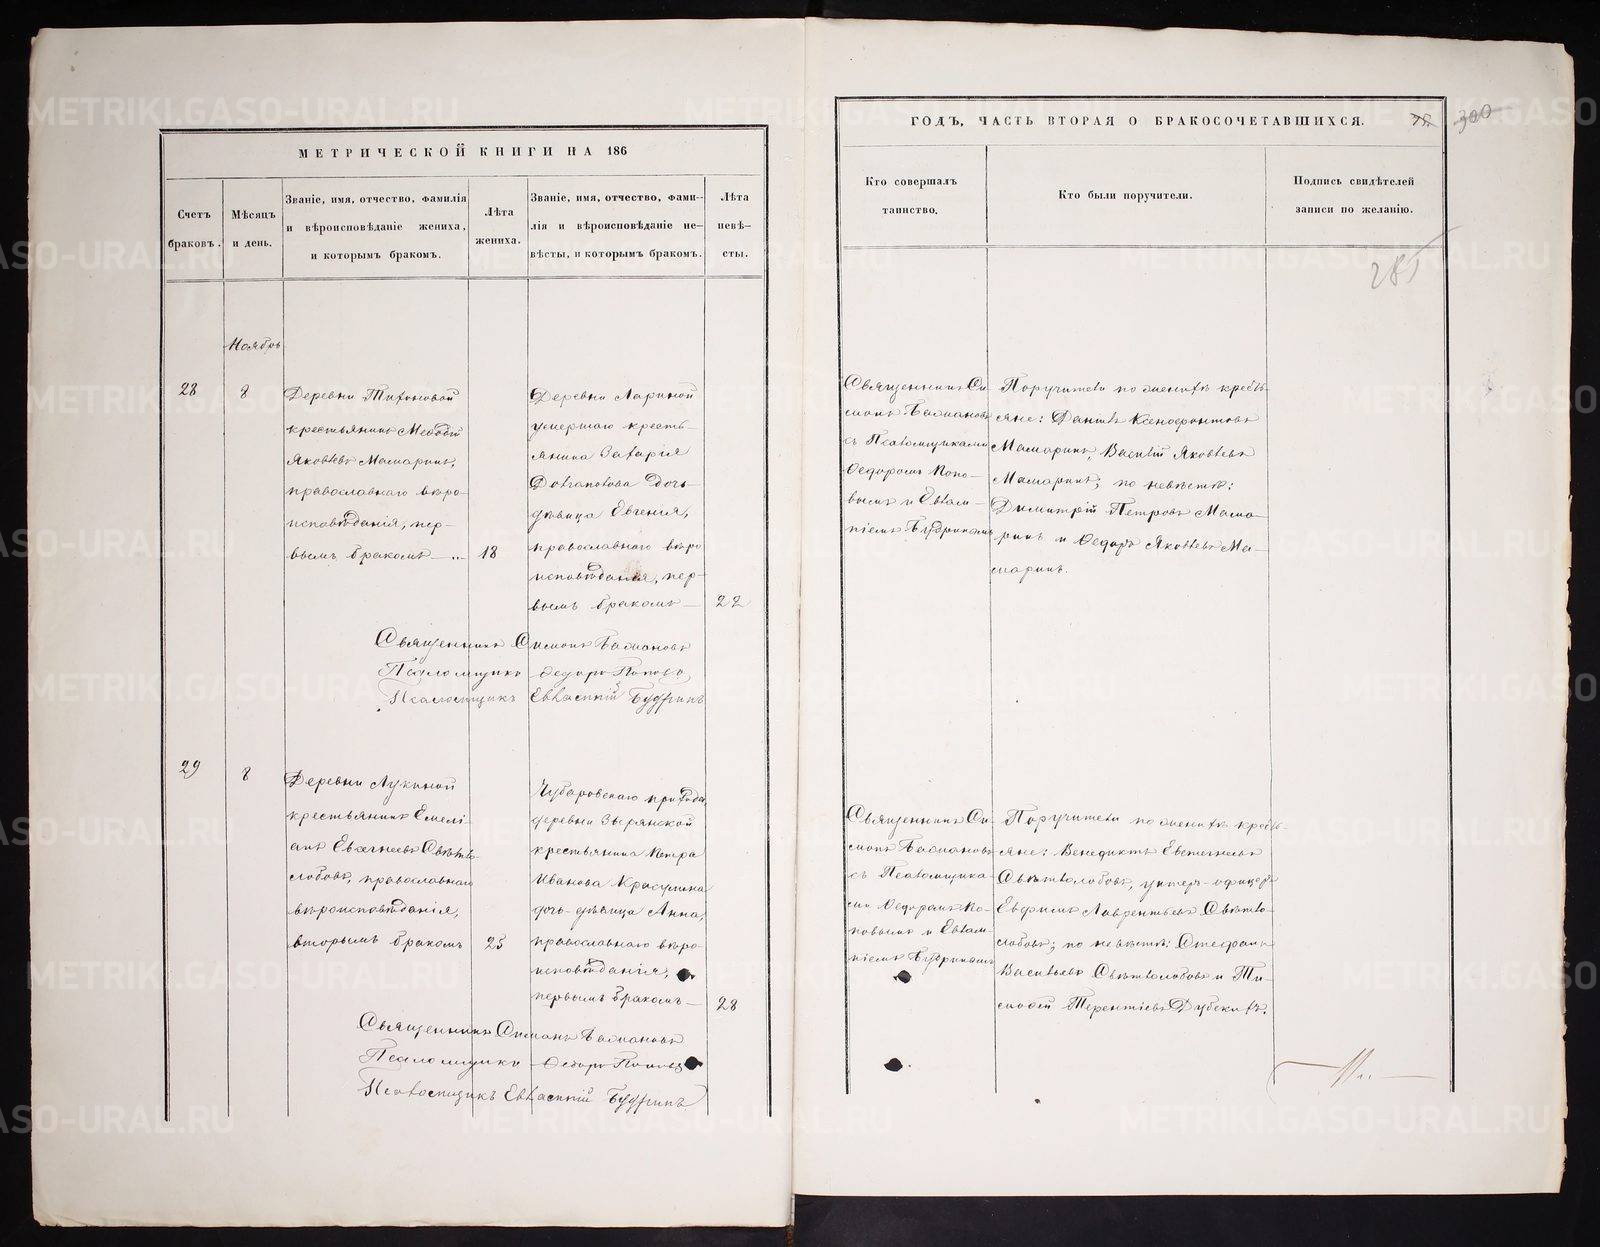 МЕТРИЧЕСКОЙ КНИГИ НА 186
Счетъ браковъ.
Мѣсяцъ и день.
Званіе, имя, отчество, фамилія
и вѣроисповѣданіе жениха,
и которымъ бракомъ.
Лѣта жениха.
Званіе, имя, отчество, фами-
лія и вѣроисповѣданіе не-
вѣсты, и которымъ бракомъ.
Лѣта невѣ-
сты.
Ноябрь
28
8
Деревни Тихоновой
крестьянинъ Меѳодій
Яковлевъ Мамаринъ,
православнаго вѣро
исповѣданія, пер-
вымъ бракомъ
18
Деревни Лариной
умершаго кресть-
янина Захарія
дочь
дѣвица Евгенія,
православнаго вѣро
исповѣданія, пер-
вымъ бракомъ
22
Священникъ Симонъ Бамановъ
Псаломщикъ Ѳедоръ Поповъ
Псаломщикъ Евлампій Будринъ
29
8
Деревни Лукиной
крестьянинъ Емелі-
анъ Свѣтло-
лобовъ, православнаго
вѣроисповѣданія,
вторымъ бракомъ
25
Чубаровскаго прихода
деревни Зырянской
крестьянина Петра
Иванова Красулина
дочь дѣвица Анна,
православнаго вѣро-
исповѣданія,
первымъ бракомъ
28
Священникъ Симонъ Бамановъ
Псаломщикъ Ѳедоръ Поповъ
Псаломщикъ Евлампій Будринъ
ГОДЪ, ЧАСТЬ ВТОРАЯ О БРАКОСОЧЕТАВШИХСЯ.
300
Кто совершалъ
таинство.
Кто были поручители.
Подпись свидѣтелей
записи по желанію.
285
Священникъ Си-
монъ Бамановъ
съ Псаломщиками
Ѳедоромъ Попо-
вымъ и Евлам-
піемъ Будринымъ
Поручители по женихѣ кресть-
яне: Даніилъ Ксенофонтовъ
Мамаринъ, Василій Яковлевъ
Мамаринъ; по невѣстѣ:
Димитрій Петровъ Мама-
ринъ и Ѳедоръ Яковлевъ Ма-
маринъ.
Священникъ Си-
монъ Бамановъ
съ Псаломщика-
ми Ѳедоромъ По-
повымъ и Евлам-
піемъ Будринымъ
Поручители по женихѣ кресть-
яне: Венедиктъ
Свѣтлолобовъ, унтеръ-офицеръ
Евфимъ Лаврентьевъ Свѣтло-
лобовъ; по невѣстѣ: Стефанъ
Васильевъ Свѣтлолобовъ и Ти-
моѳей Терентіевъ Дубскихъ.
METRIKI.GASO-URAL.RU